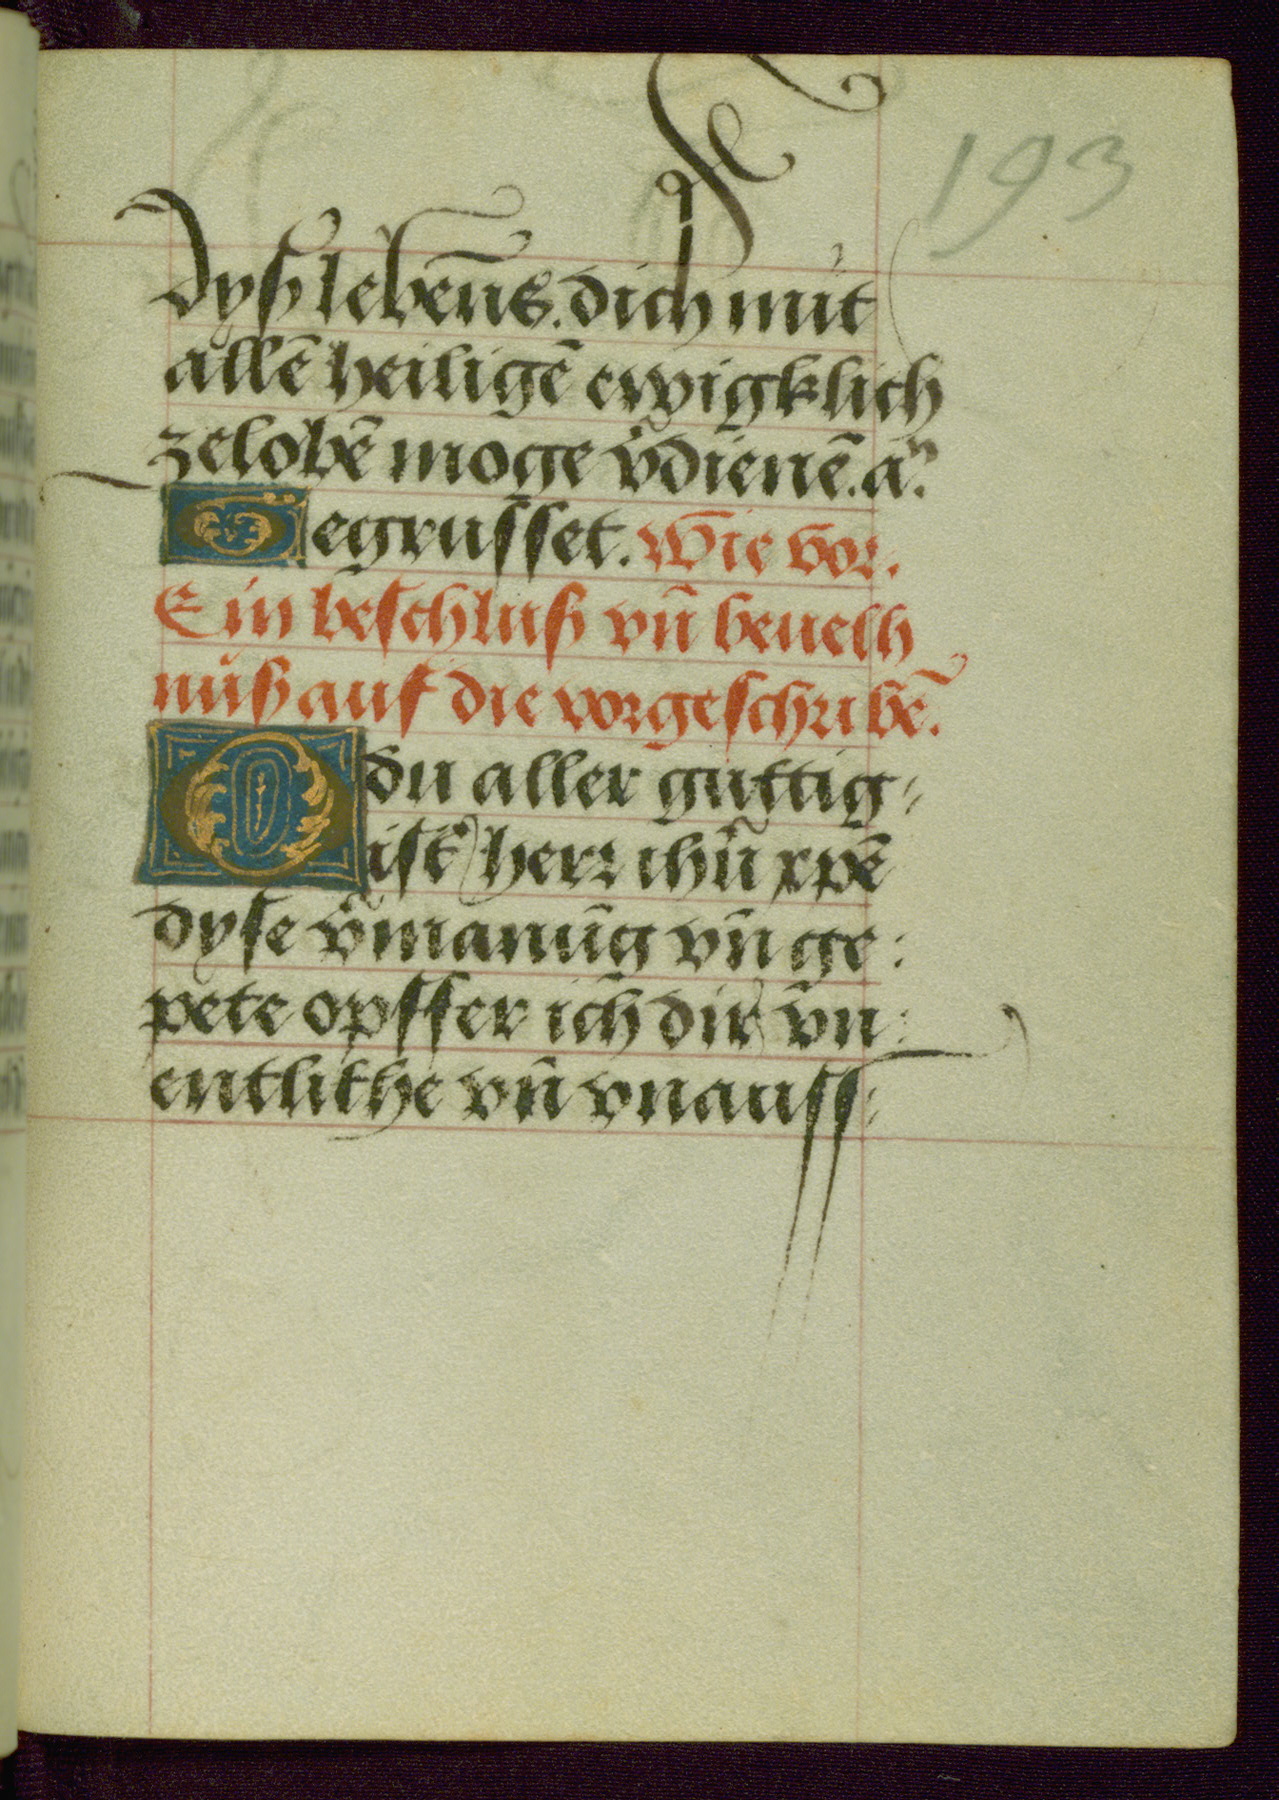 193
dyß lebēns. dich mit
allē heiligē ewigklich
zelobē moge v̄dienē. a.
Gegrusset. Wie vor.
Ein beschluß vn̄ beuelh
nuß auf die vorgeschribē.
O du aller guttig-
ist herr ihū xpē
dyse v̄manūg vn̄ ge:
pete opffer ich dir vn:
entlithe vn̄ vnauss: